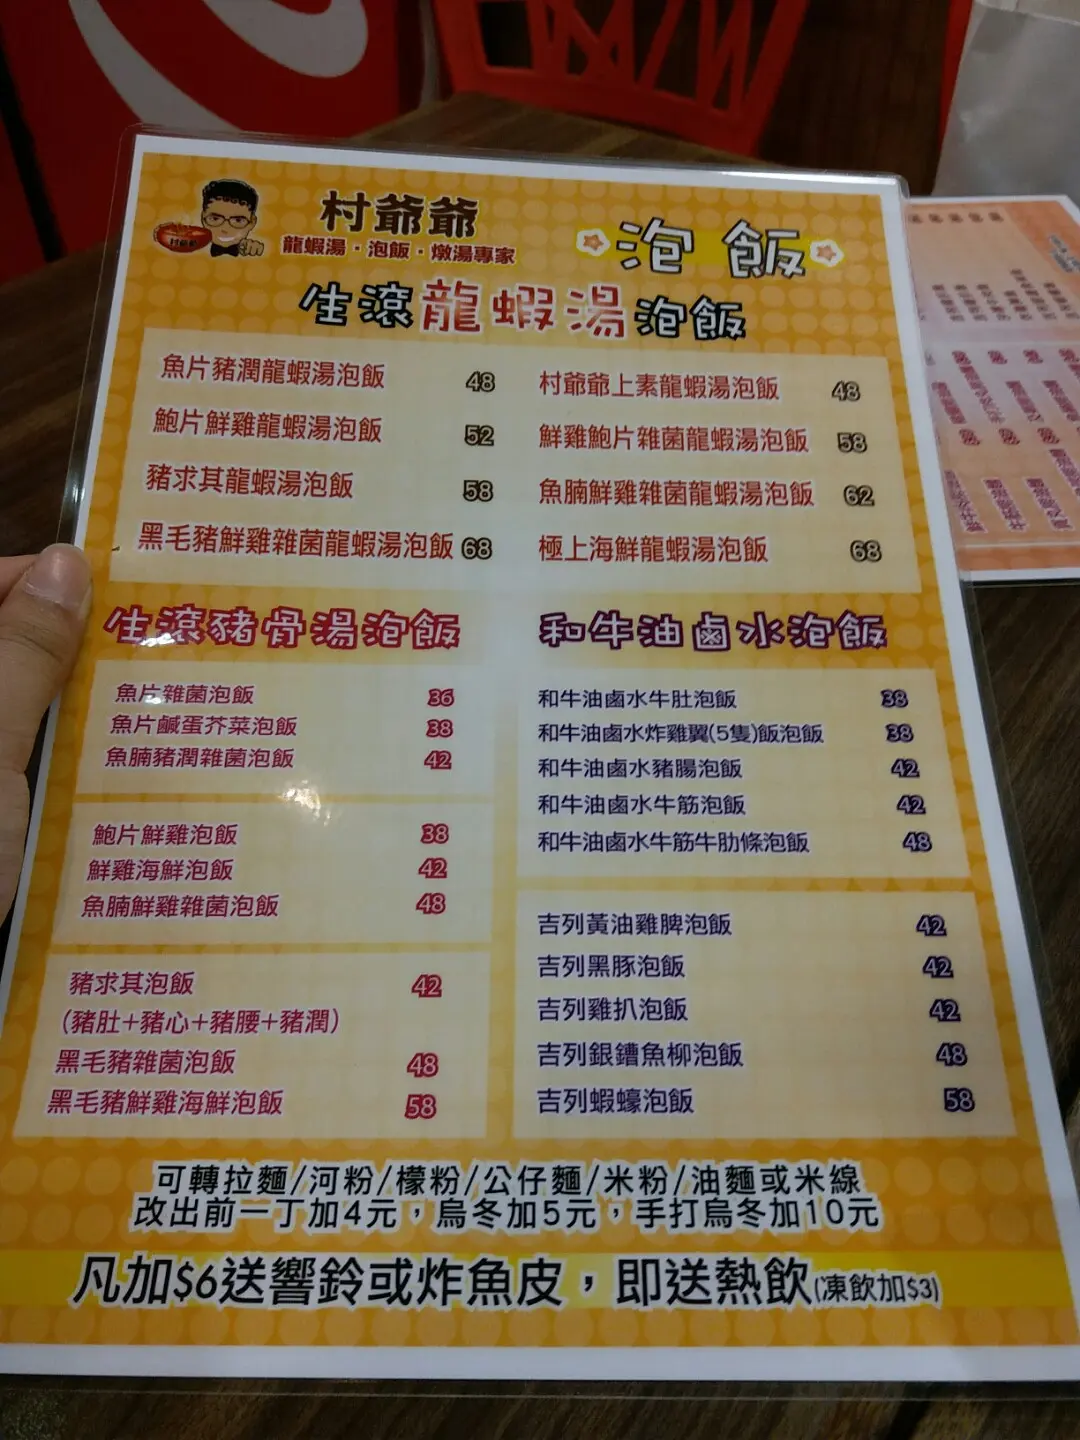 村爺爺
村爺爺
龍蝦湯·泡飯·燉湯專家
泡飯
生滾龍蝦湯泡飯
魚片豬潤龍蝦湯泡飯 48
鮑片鮮雞龍蝦湯泡飯 52
豬求其龍蝦湯泡飯 58
黑毛豬鮮雞雜菌龍蝦湯泡飯 68
村爺爺上素龍蝦湯泡飯 48
鮮雞鮑片雜菌龍蝦湯泡飯 58
魚腩鮮雞雜菌龍蝦湯泡飯 62
極上海鮮龍蝦湯泡飯 68
生滾豬骨湯泡飯
魚片雜菌泡飯 36
魚片鹹蛋芥菜泡飯 38
魚腩豬潤雜菌泡飯 42
鮑片鮮雞泡飯 38
鮮雞海鮮泡飯 42
魚腩鮮雞雜菌泡飯 48
豬求其泡飯 42
(豬肚+豬心+豬腰+豬潤)
黑毛豬雜菌泡飯 48
黑毛豬鮮雞海鮮泡飯 58
和牛油鹵水泡飯
和牛油鹵水牛肚泡飯 38
和牛油鹵水炸雞翼(5隻)飯泡飯 38
和牛油鹵水豬腸泡飯 42
和牛油鹵水牛筋泡飯 42
和牛油鹵水牛筋牛肋條泡飯 48
吉列黃油雞脾泡飯 42
吉列黑豚泡飯 42
吉列雞扒泡飯 42
吉列銀鱈魚柳泡飯 48
吉列蝦蠔泡飯 58
可轉拉麵/河粉/檬粉/公仔麵/米粉/油麵或米線
改出前一丁加4元，烏冬加5元，手打烏冬加10元
凡加$6送響鈴或炸魚皮，即送熱飲(凍飲加$3)